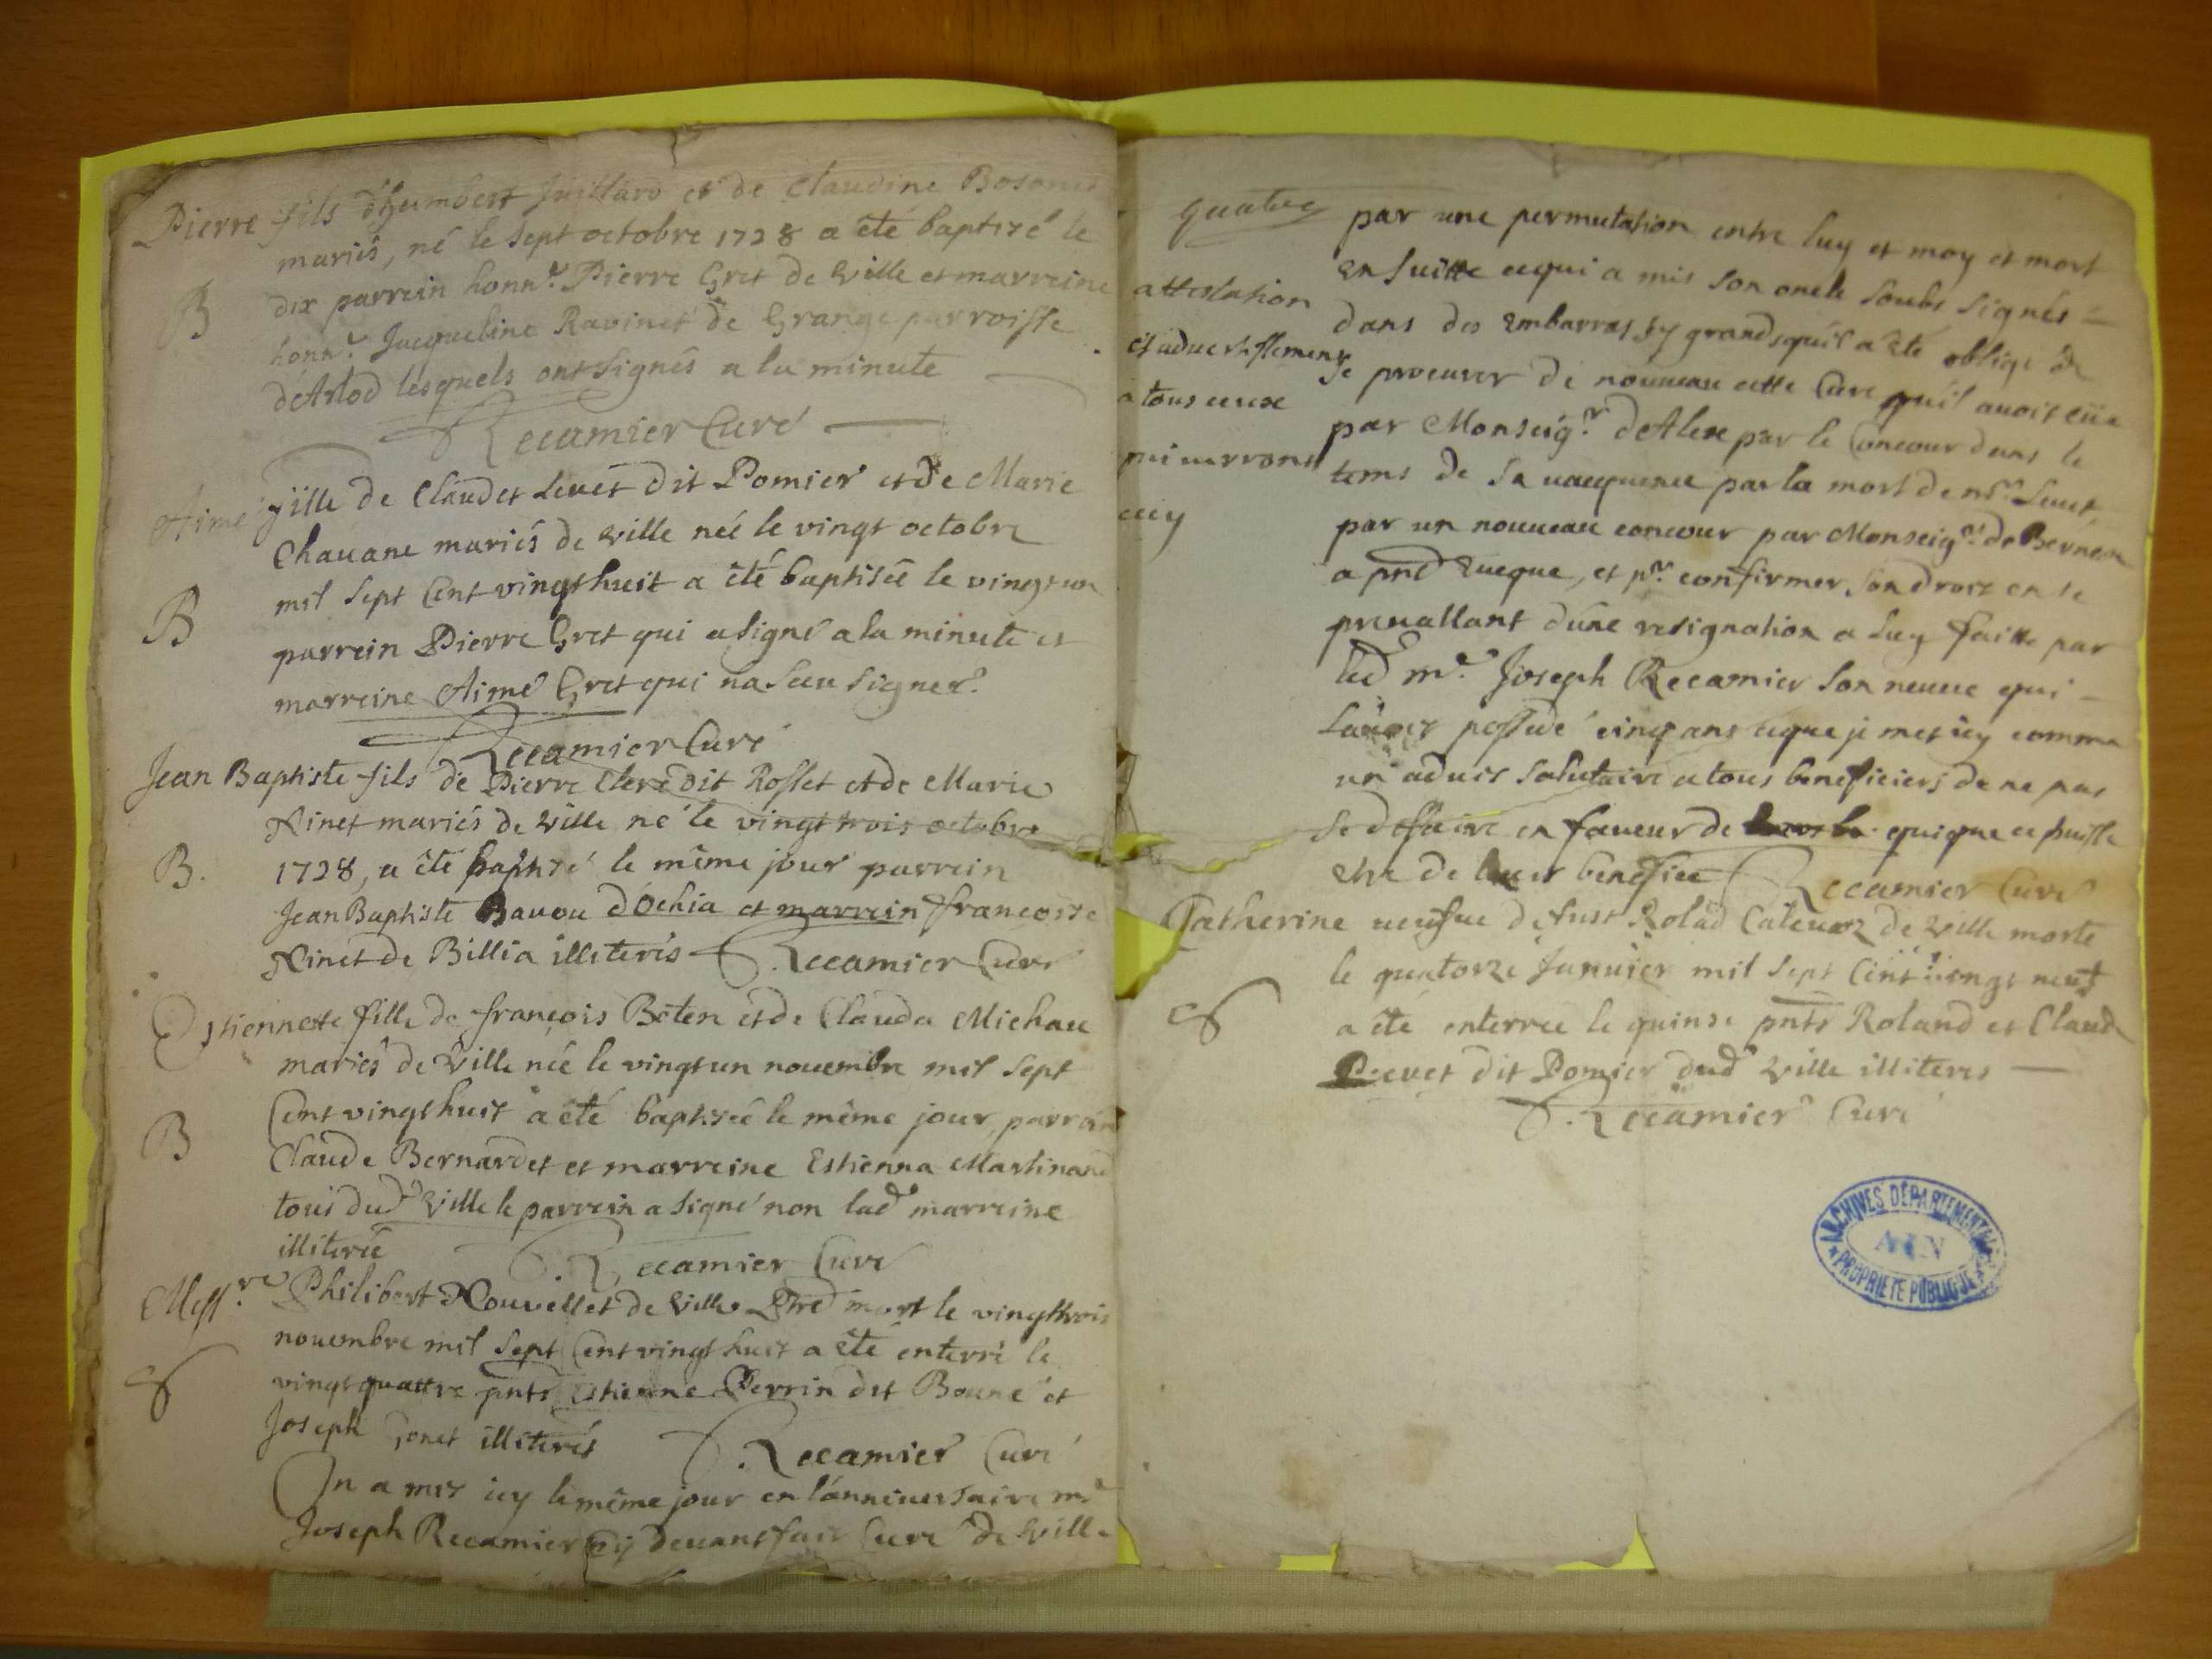 Pierre fils d'humbert Juillard et de Claudine Bosonet
mariés, né le sept octobre 1728 a été baptizé le
B
dix parrein honn.e Pierre Gret de Ville et marreine
honn.e Jacqueline Ravinet de Grange parroisse
d'Arlod lesquels ont signés a la minute
Recamier Curé
Aimé fille de Claudet Levet dit Pomier et de Marie
Chavane mariés de Ville née le vingt octobre
mil sept Cent vingt huit a été baptisée le vingt un
B
parrein Pierre Gret qui a signé a la minute et
marreine Aimé Gret qui na sceu signer.
Recamier Curé
Jean Baptiste fils de Pierre Clerc dit Rosset et de Marie
Ninet mariés de Ville né le vingt trois octobre
B.
1728, a été baptizé le même jour parrein
Jean Baptiste Bavou d'Ochia et marrein françoise
Ninet de Billia illiterés Recamier Curé
Estiennette fille de françois Beten et de Clauda Michau
mariés de Ville née le vingt un novembre mil sept
Cent vingt huit a été baptisée le même jour, parrein
B
Claude Bernardet et marreine Estienna Martinand
tous dud Ville le parrein a signé non lad marreine
illiterée
Recamier Curé
Mess.re Philibert Nouvellet de Ville Ptre mort le vingt trois
novembre mil sept Cent vingt huit a été enterré le
vingt quattre pnts Estienne Perrin dit Boune et
Joseph Gonet illiterés Recamier Curé
On a mis icy le même jour en l'anniversaire mr
Joseph Recamier cy devant fait Curé de Ville
quatre
attestation
et advertissement
a tous ceux
qui verront
cecy
par une permutation entre luy et moy et mort
en suitte ce qui a mis son oncle soubs signés
dans des embarras sy grands qu'il a été obligé de
se procurer de nouveau cette Cure qu'il avoit eüe
par Monseig.r d'Alex par le Concour dans le
tems de sa vacquence par la mort de mr. Levet,
par un nouveau concour par Monseig.r de Bernex
a pnt Eveque, et pr. confirmer son droit en se
prevallant d'une resignation a luy faitte par
led mr. Joseph Recamier son neveu qui
l'avoit possedé cinq ans ce que je met icy comme
un advis salutaire a tous beneficiers de ne pas
se deffaire en faveur de quique ce puisse
etre de leur benefice Recamier Curé
Catherine veufve defunt Rolad Catevoz de Ville morte
le quatorze Janvier mil sept Cent vingt neuf
a été enterrée le quinze pnts Roland et Claude
Levet dit Pomier dud Ville illiteres
Recamier Curé
ARCHIVES DÉPARTEMENTALES
AIN
PROPRIÉTÉ PUBLIQUE